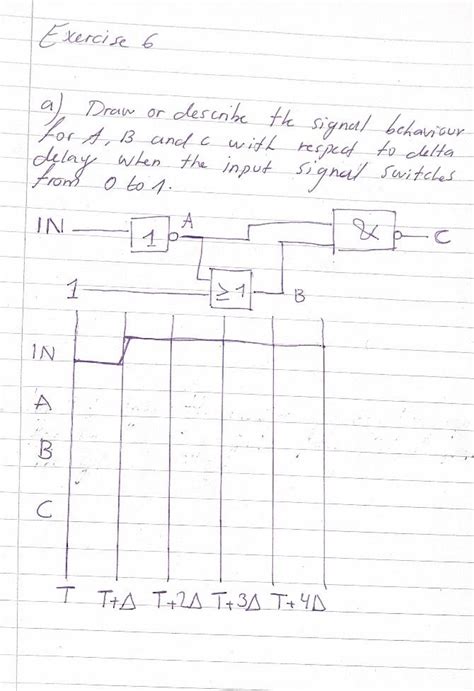 Exercise 6
a) Draw or describe the signal behaviour
for A, B and C with respect to delta
delay when the input signal switches
from 0 to 1.
IN 1 A & C
1 ≥1 B
IN
A
B
C
T T+Δ T+2Δ T+3Δ T+4Δ